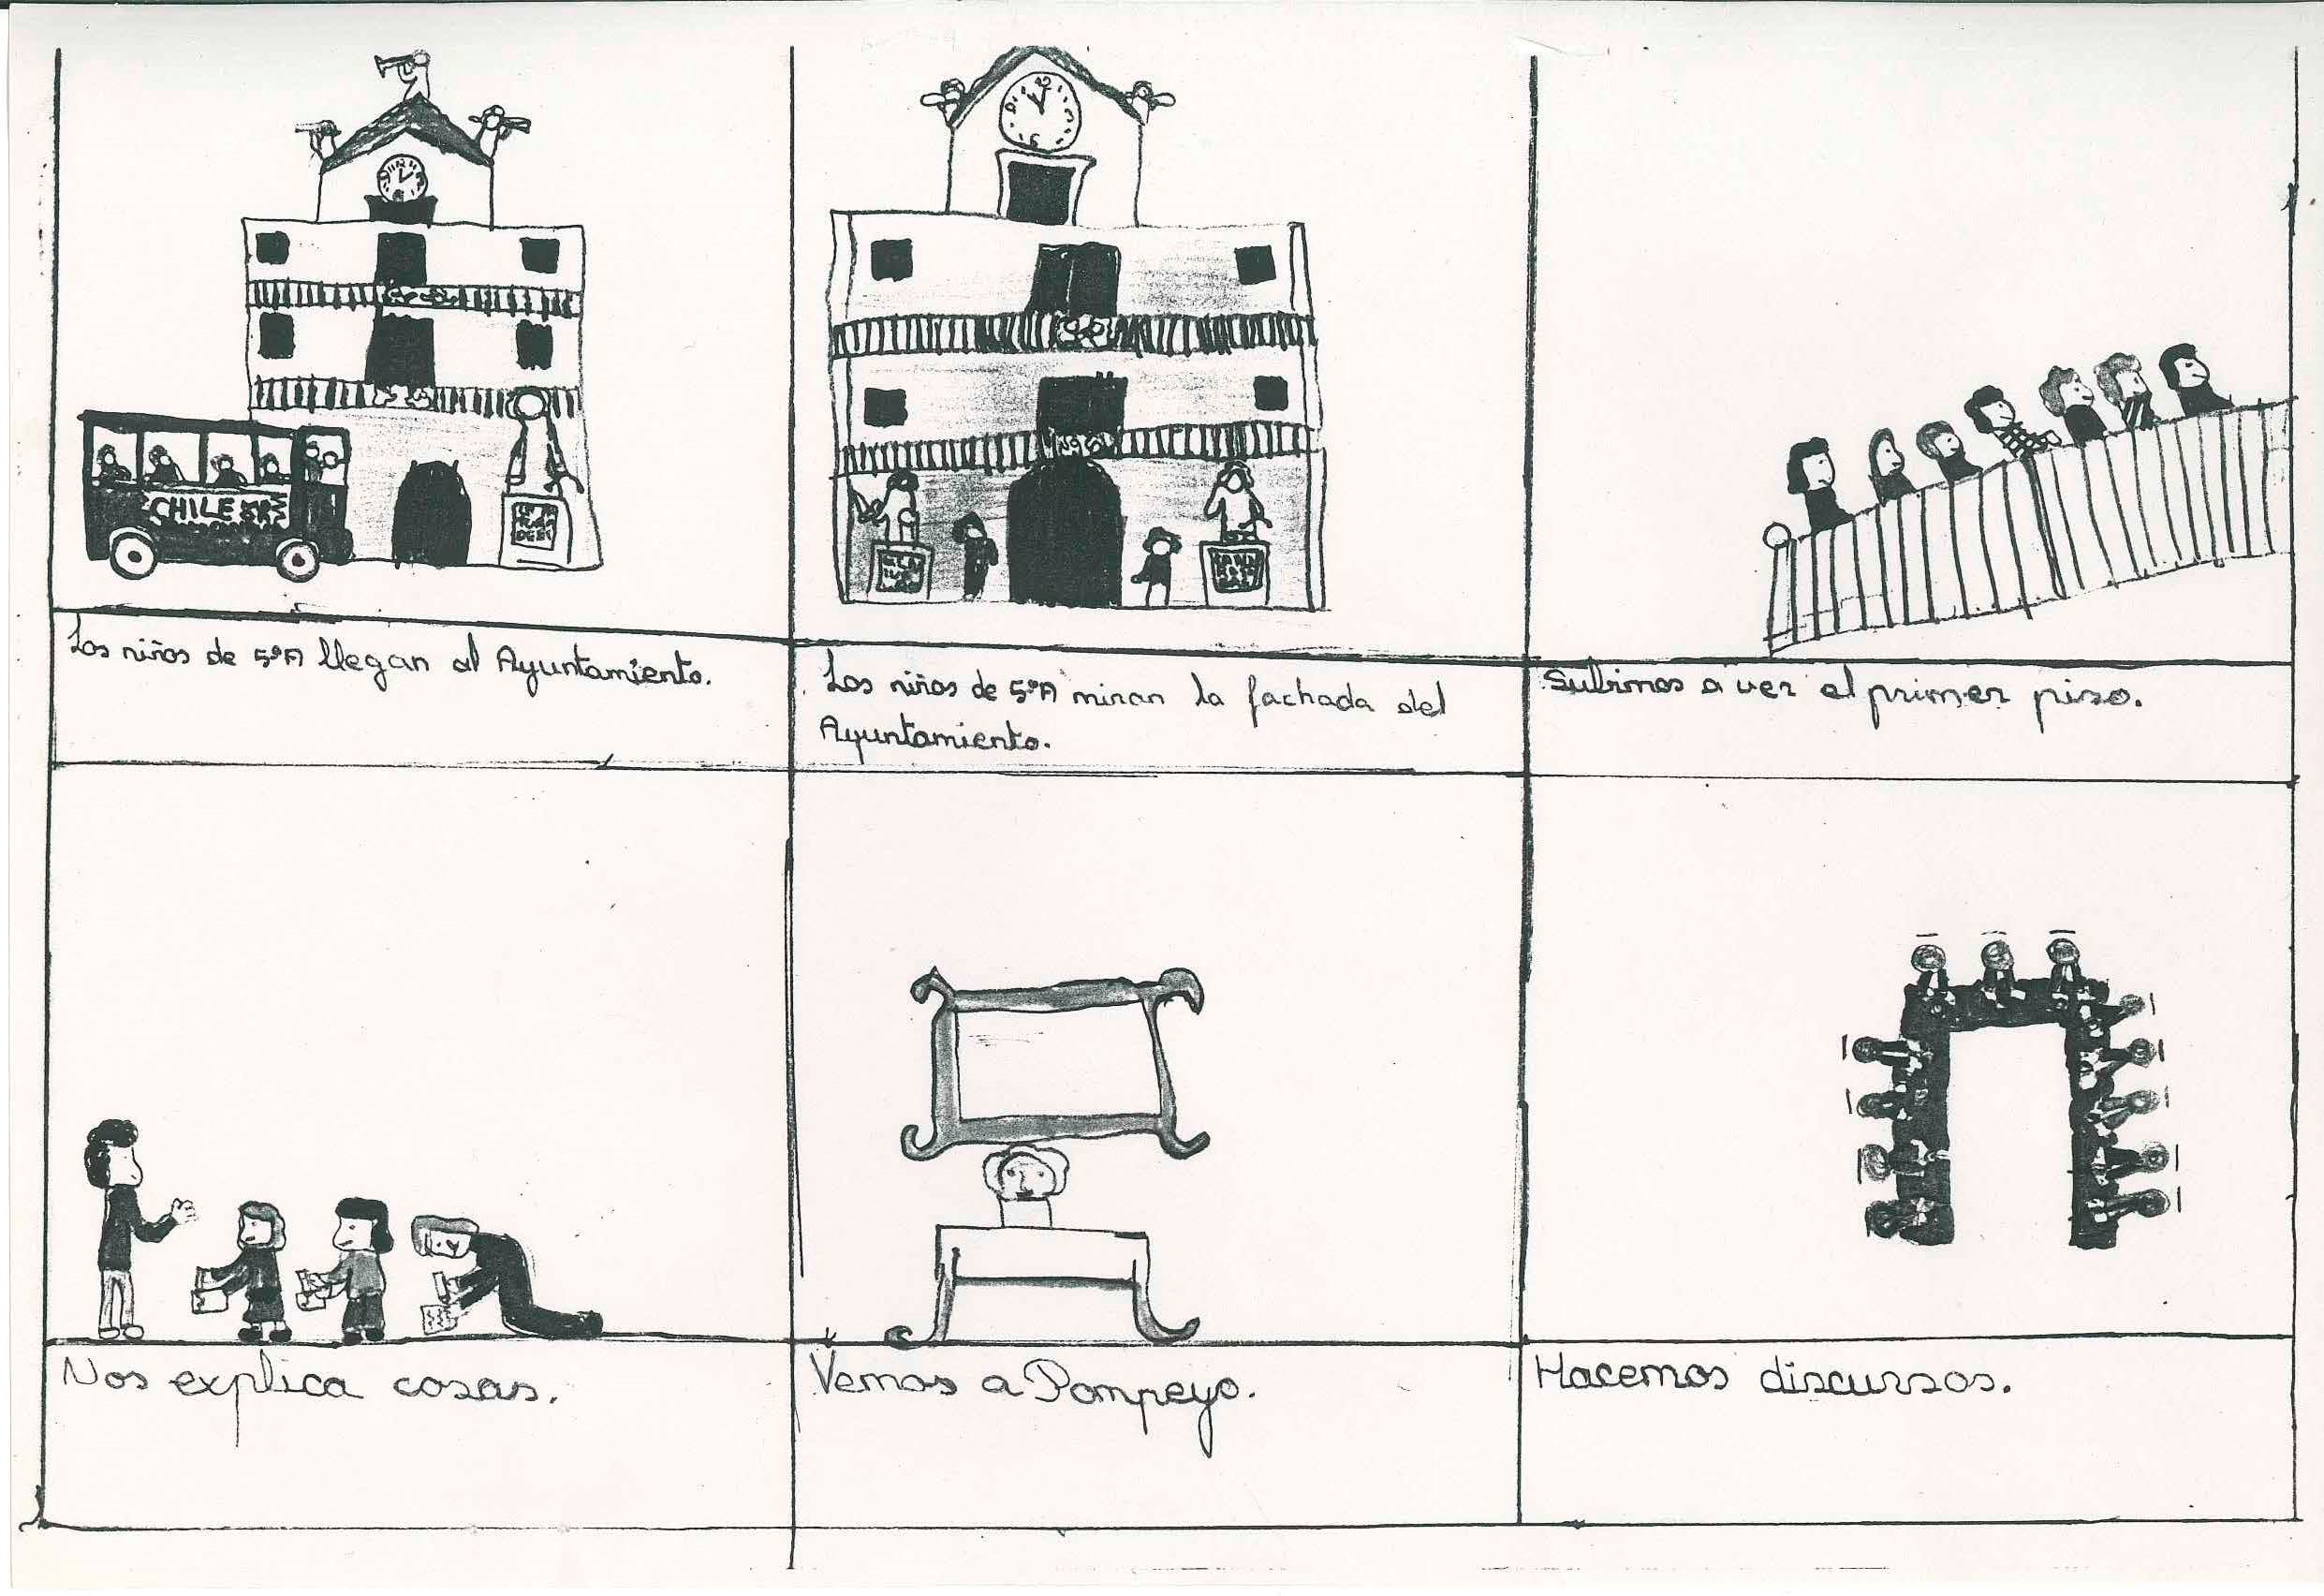 CHILE
Los niños de 5ºA llegan al Ayuntamiento.
Los niños de 5ºA miran la fachada del
Ayuntamiento.
Subimos a ver el primer piso.
Nos explica cosas.
Vemos a Pompeyo.
Hacemos discursos.